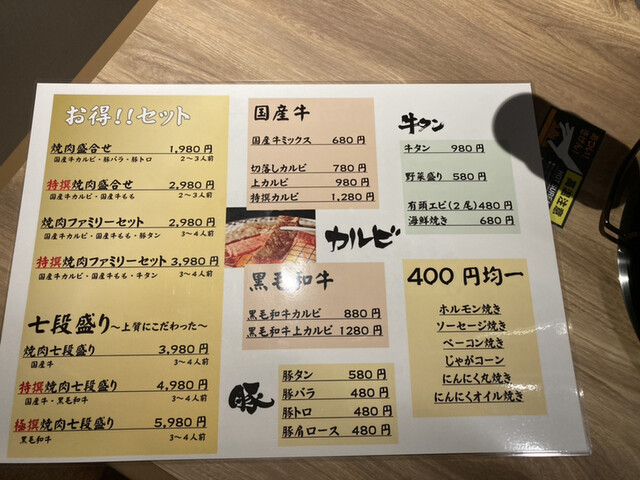 お得!!セット
焼肉盛合せ 1,980円
国産牛カルビ・豚バラ・豚トロ 2〜3人前
特撰焼肉盛合せ 2,980円
国産牛カルビ・国産牛もも 2〜3人前
焼肉ファミリーセット 2,980円
国産牛カルビ・国産牛もも・豚タン 3〜4人前
特撰焼肉ファミリーセット 3,980円
国産牛カルビ・国産牛もも・牛タン 3〜4人前
七段盛り〜上質にこだわった〜
焼肉七段盛り 3,980円
国産牛 3〜4人前
特撰焼肉七段盛り 4,980円
国産牛・黒毛和牛 3〜4人前
極撰焼肉七段盛り 5,980円
黒毛和牛 3〜4人前
国産牛
国産牛ミックス 680円
切落しカルビ 780円
上カルビ 980円
特撰カルビ 1,280円
カルビ
黒毛和牛
黒毛和牛カルビ 880円
黒毛和牛上カルビ 1280円
豚
豚タン 580円
豚バラ 480円
豚トロ 480円
豚肩ロース 480円
牛タン
牛タン 980円
野菜盛り 580円
有頭エビ(2尾)480円
海鮮焼き 680円
400円均一
ホルモン焼き
ソーセージ焼き
ベーコン焼き
じゃがコーン
にんにく丸焼き
にんにくオイル焼き